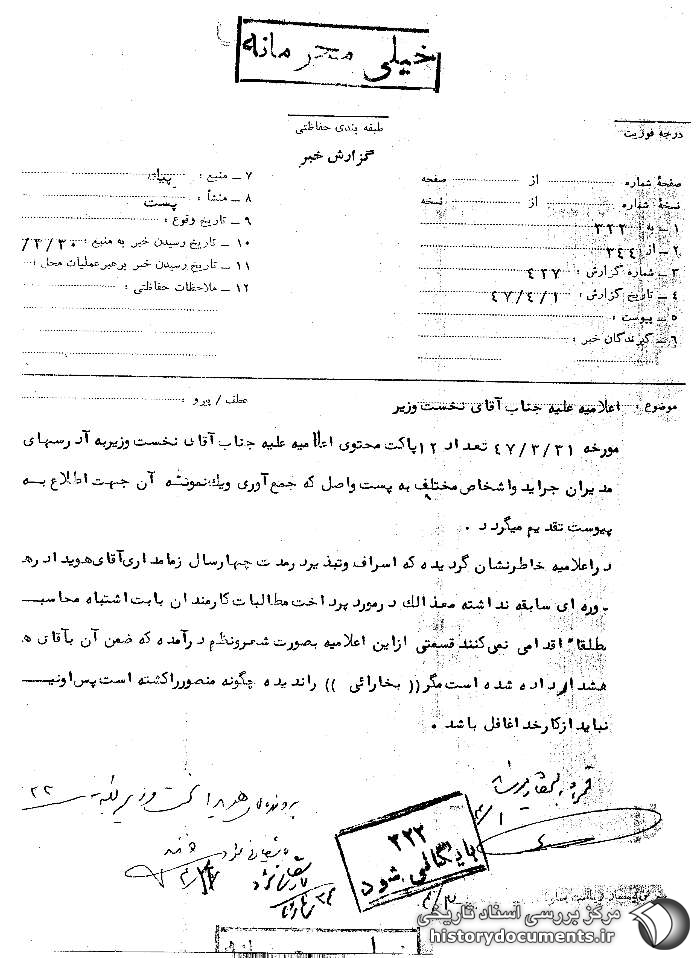 خیلی محرمانه
طبقه بندی حفاظتی
درجه فوریت
گزارش خبر
صفحهٔ شماره از صفحه
نسخهٔ شماره از نسخه
۱ - به : ۳۲۲
۲ - از : ۳۴۴
۳ - شماره گزارش : ۴۲۷
۴ - تاریخ گزارش : ۴۷/۴/۱
۵ - پیوست :
۶ - گیرندگان خبر :
۷ - منبع :
۸ - منشأ : پست
۹ - تاریخ وقوع :
۱۰ - تاریخ رسیدن خبر به منبع : /۳/۳۰
۱۱ - تاریخ رسیدن خبر به رهبر عملیات محل :
۱۲ - ملاحظات حفاظتی :
موضوع : اعلامیه علیه جناب آقای نخست وزیر عطف / پیرو :
مورخه ۴۷/۳/۳۱ تعداد ۱۲ پاکت محتوی اعلامیه علیه جناب آقای نخست وزیر به آدرسهای
مدیران جراید و اشخاص مختلف به پست واصل که جمع آوری و یک نمونه آن جهت اطلاع به
پیوست تقدیم میگردد .
در اعلامیه خاطرنشان گردیده که اسراف و تبذیر در مدت چهار سال زمامداری آقای هویدا در ه
دوره ای سابقه نداشته معذالک در مورد پرداخت مطالبات کارمندان بابت اشتباه محاسب
مطلقا" اقدامی نمی کنند قسمتی از این اعلامیه بصورت شعر و نظم درآمده که ضمن آن بآقای ه
هشدار داده شده است مگر (( بخارائی )) را ندیده چگونه منصور را کشته است پس او نیز
نباید از کار خدا غافل باشد .
۲۲
۳۲۲
بایگانی شود
مرکز بررسی اسناد تاریخی
historydocuments.ir